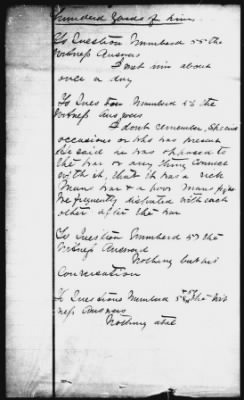 hundred yards of him
To Question Numberd 55 the
Witness Answers
I met him about
once a day
To Question Numberd 56 the
Witness Answers
I dont remember, Special
occasions or who was present
He said he was opposed to
the war or any thing connected
with it, that it was a rich
Mans war & a poor mans fight
We frequently disputed with each
other after the war
To Question Numberd 57 the
Witness Answerd
Nothing but his
Conversation
To Questions Numberd 58 the Wit
ness Answers
Nothing atal